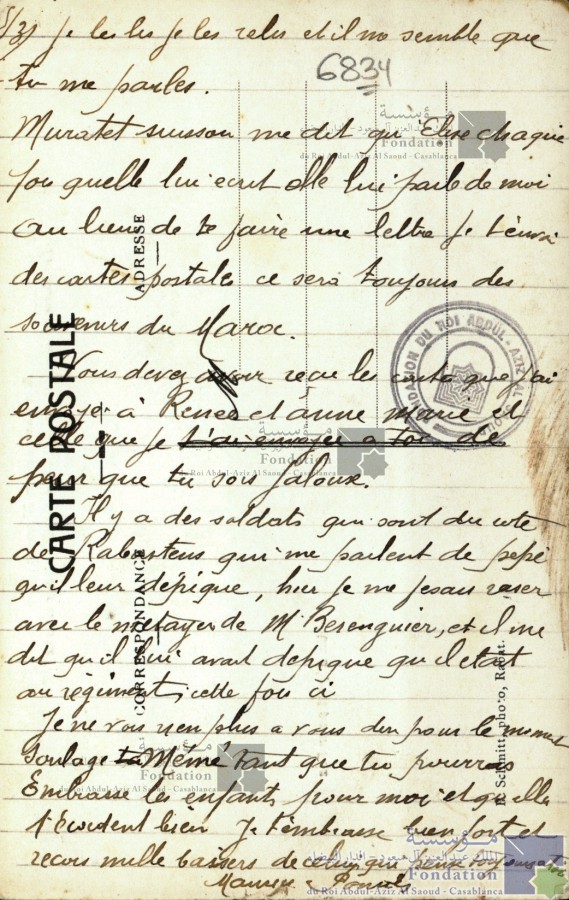 5/3) je les lis je les relis et il me semble que
6834
tu me parles.
Muratet suisson me dit qu'Elise chaque
fou quelle lui ecrit elle lui parle de moi
au lieu de te faire une lettre je t'envoi
des cartes postales ce sera toujours des
souvenirs du Maroc.
Vous devez avoir recu les cartes que j'ai
envoyé à Renee et Anne Marie et
celle que je t'ai envoyee a toi de
peur que tu sois jaloux.
Il y a des soldats qui sont du coté
de Rabastens qui me parlent de pepé
qu'il leur dépique, hier je me fesais raser
avec le métayer de Mr Berenguier, et il me
dit qu'il lui avait depique qu'il etait
au régiment, cette fou ci
Je ne vois rien plus a vous dire pour le moment
Soulage ta Mémé tant que tu pourras
Embrasse les enfants pour moi et qu'elle
t'écoutent bien Je t'embrasse bien fort et
recois mille baisers de celui que pense
CARTE POSTALE
CORRESPONDANCE
ADRESSE
R. Schmitt, photo, Rabat.
FONDATION DU ROI ABDUL-AZIZ AL SAOUD
مؤسسة
الملك عبد العزيز آل سعود - الدار البيضاء
Fondation
du Roi Abdul-Aziz Al Saoud - Casablanca